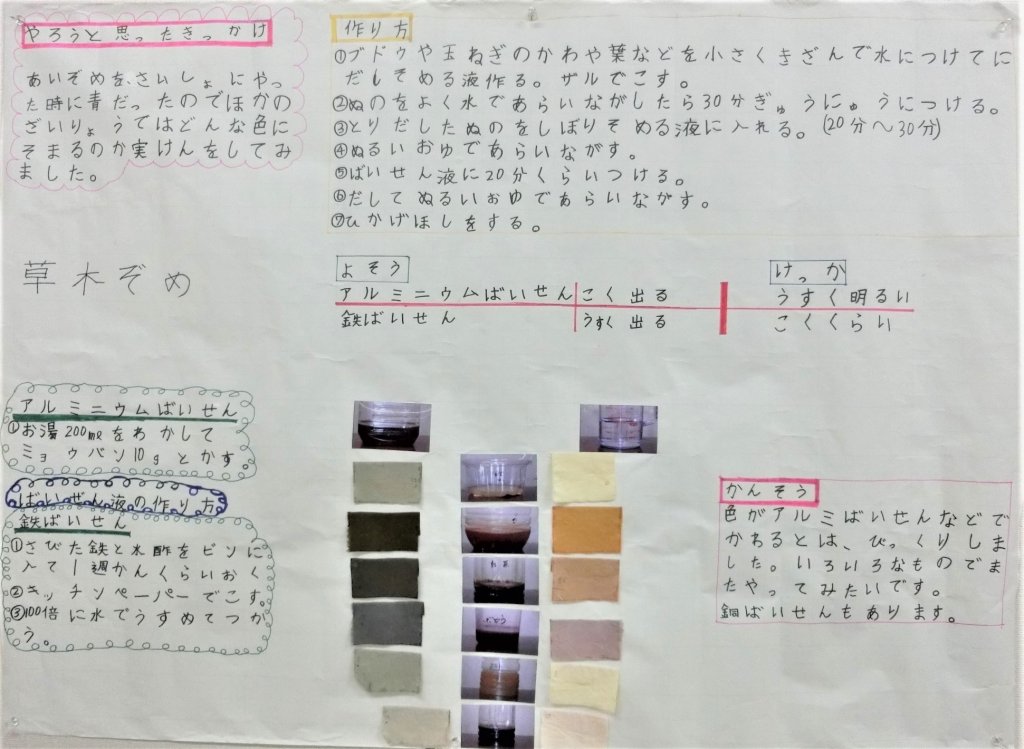 やろうと思ったきっかけ
あいぞめを、さいしょにやっ
た時に青だったのでほかの
ざいりょうではどんな色に
そまるのか実けんをしてみ
ました。
作り方
①ブドウや玉ねぎのかわや葉などを小さくきざんで水につけてに
だしそめる液作る。ザルでこす。
②ぬのをよく水であらいながしたら30分ぎゅうにゅうにつける。
③とりだしたぬのをしぼりそめる液に入れる。(20分〜30分)
④ぬるいおゆであらいながす。
⑤ばいせん液に20分くらいつける。
⑥だしてぬるいおゆであらいながす。
⑦ひかげほしをする。
草木ぞめ
よそう
けっか
アルミニウムばいせん こく出る うすく明るい
鉄ばいせん うすく出る こくくらい
アルミニウムばいせん
①お湯200mlをわかして
ミョウバン10gとかす。
ばいせん液の作り方
鉄ばいせん
①さびた鉄と水酢をビンに
入て1週かんくらいおく
②キッチンペーパーでこす。
③100倍に水でうすめてつか
う。
かんそう
色がアルミばいせんなどで
かわるとは、びっくりしま
した。いろいろなものでま
たやってみたいです。
銅ばいせんもあります。